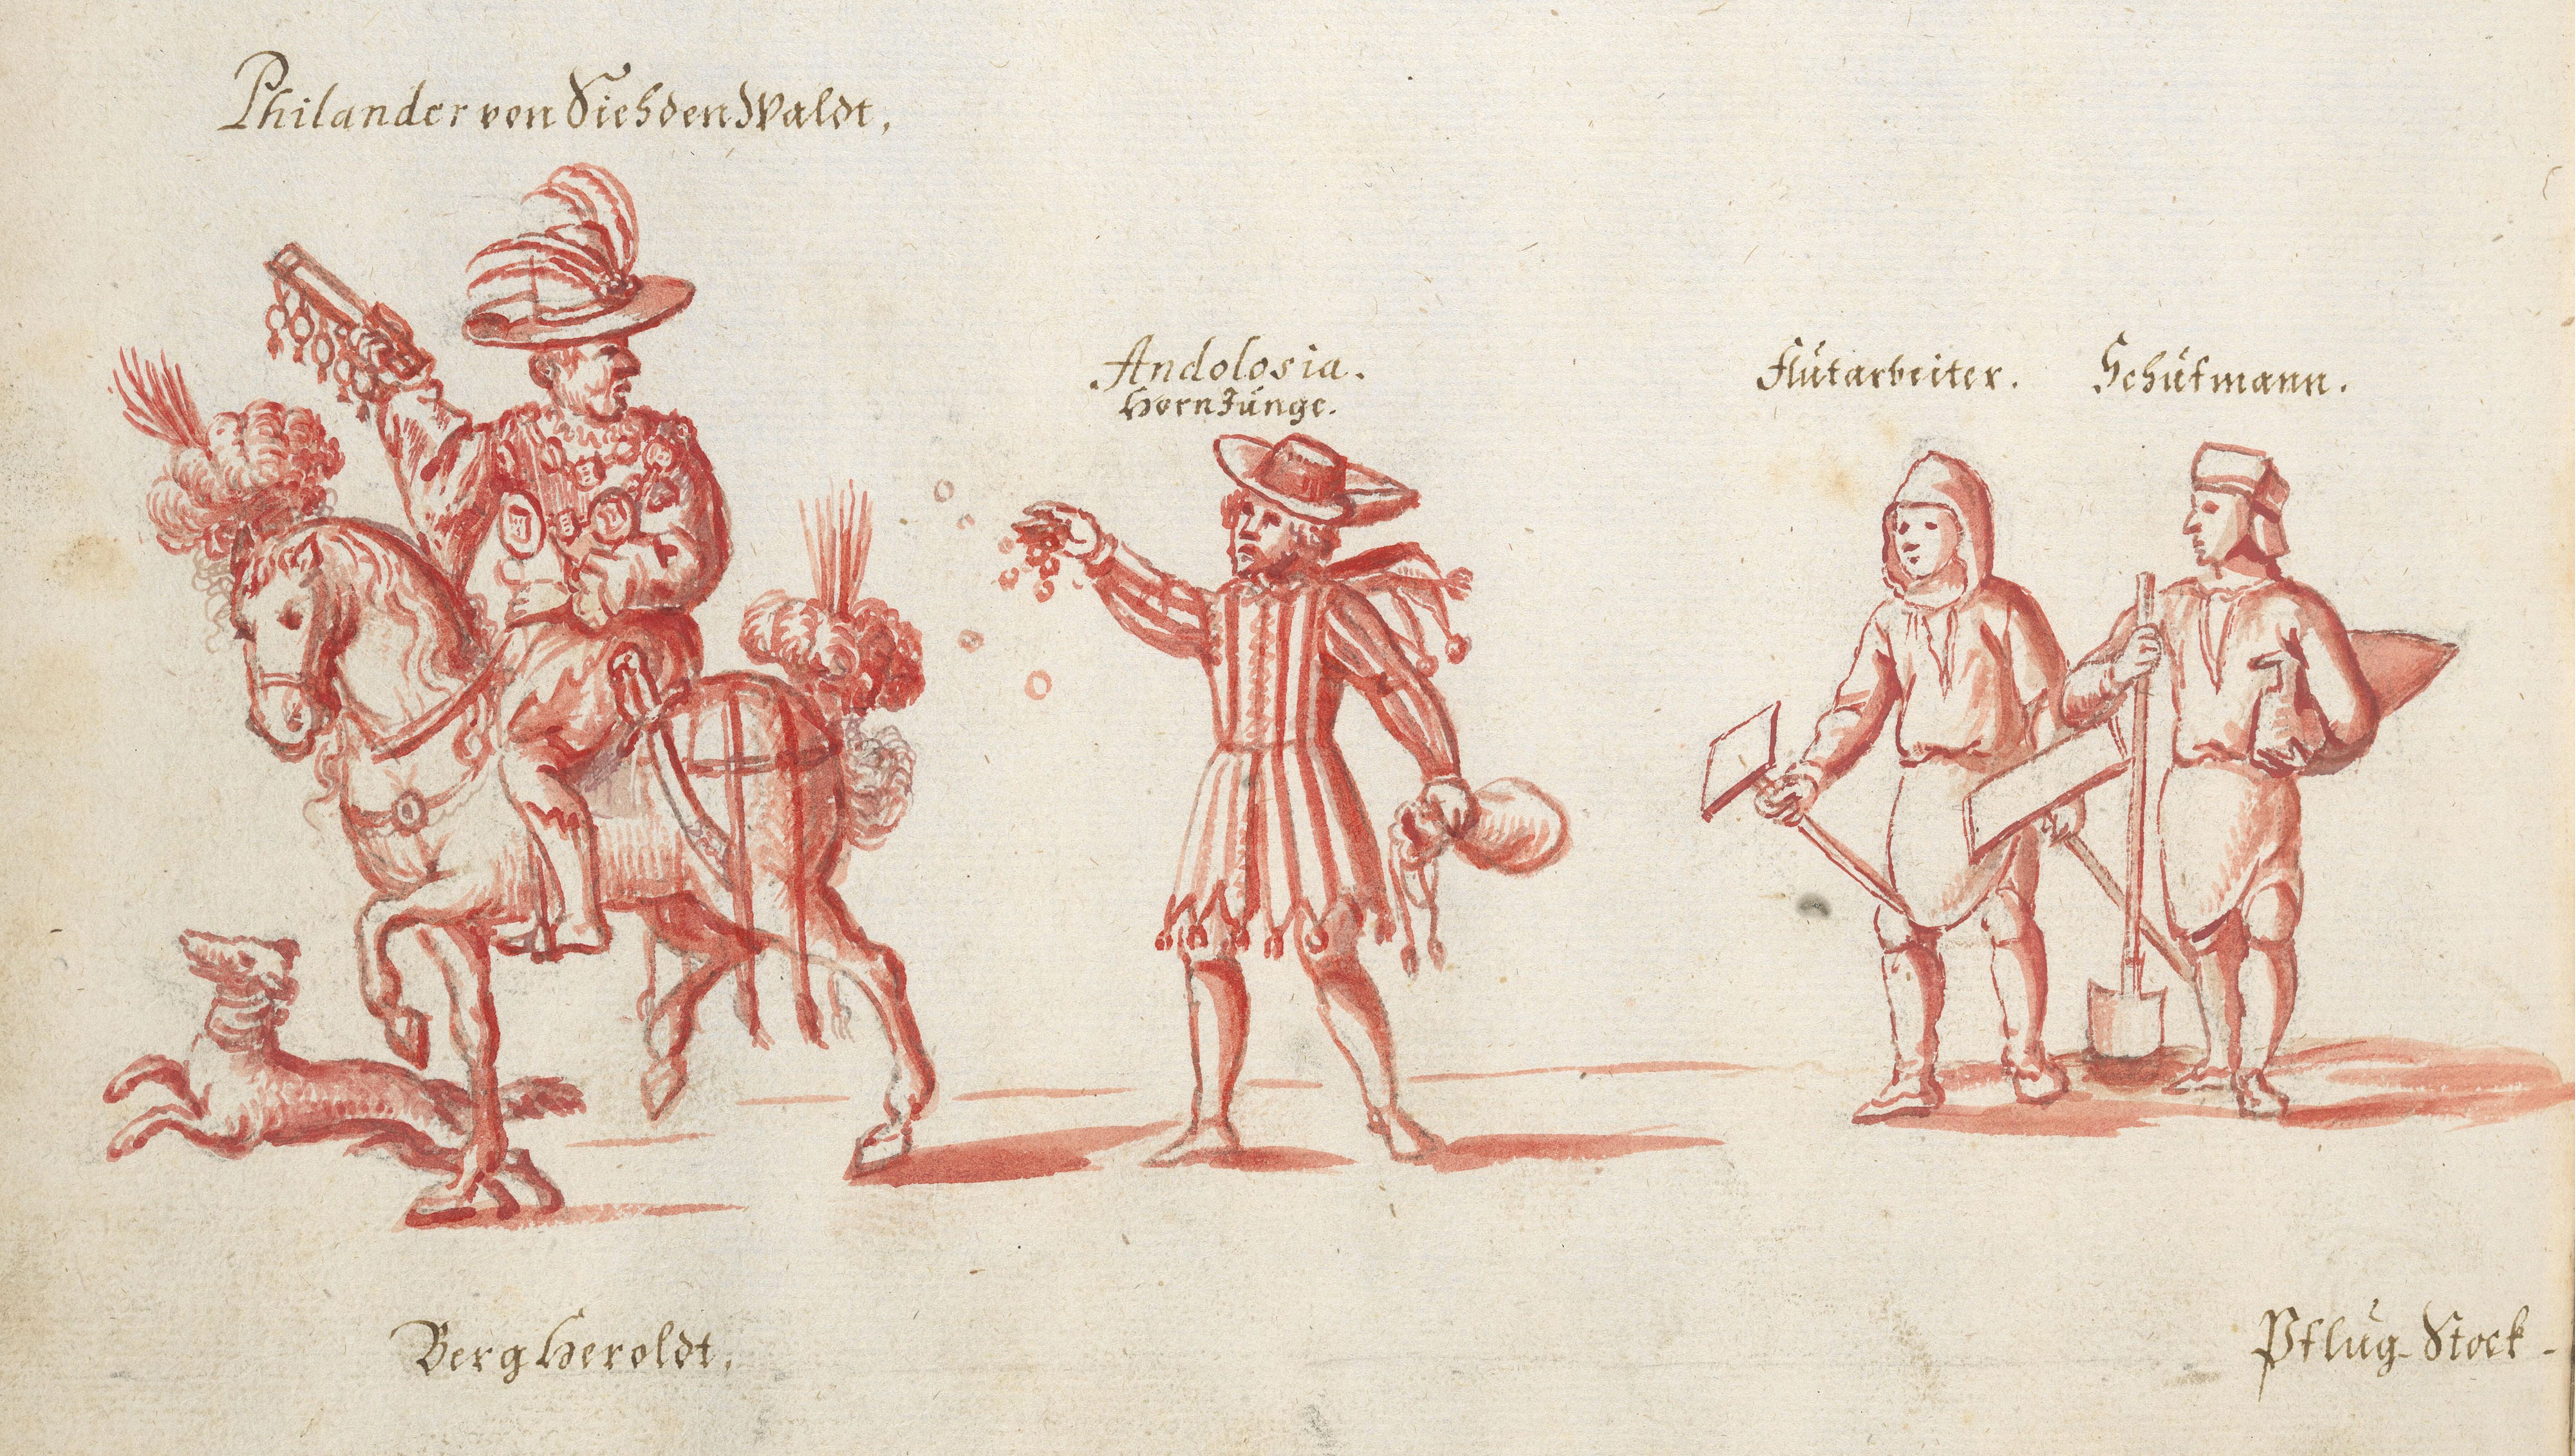 Philander von SiehdenWaldt,
Andolosia.
HornJunge.
Flutarbeiter. Schufmann.
BergHeroldt,
Pflug-Stock-